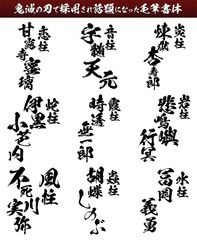 鬼滅の刃で採用され話題になった毛筆書体
炎柱
煉獄
杏寿郎
音柱
宇髄
天元
恋柱
甘露寺
蜜璃
岩柱
悲鳴嶼
行冥
霞柱
時透
無一郎
蛇柱
伊黒
小芭内
水柱
冨岡
義勇
蟲柱
胡蝶
しのぶ
風柱
不死川
実弥